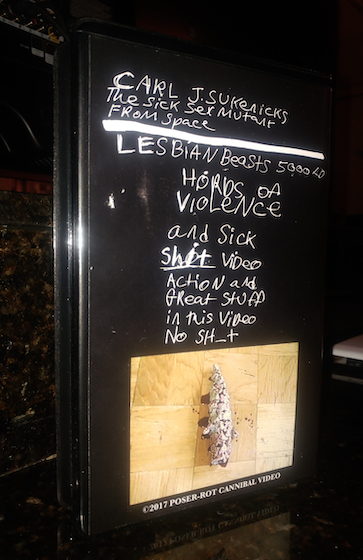 CARL J. SUKENICKS
The Sick Sex Mutant
FROM Space
LESBIAN Beasts 5000 LD
HORDS OF
VIOLENCE
and Sick
Shot VIDEO
ACTION and
Great STUFF
in this VIDEO
NO SH_t
©2017 POSER-ROT CANNIBAL VIDEO